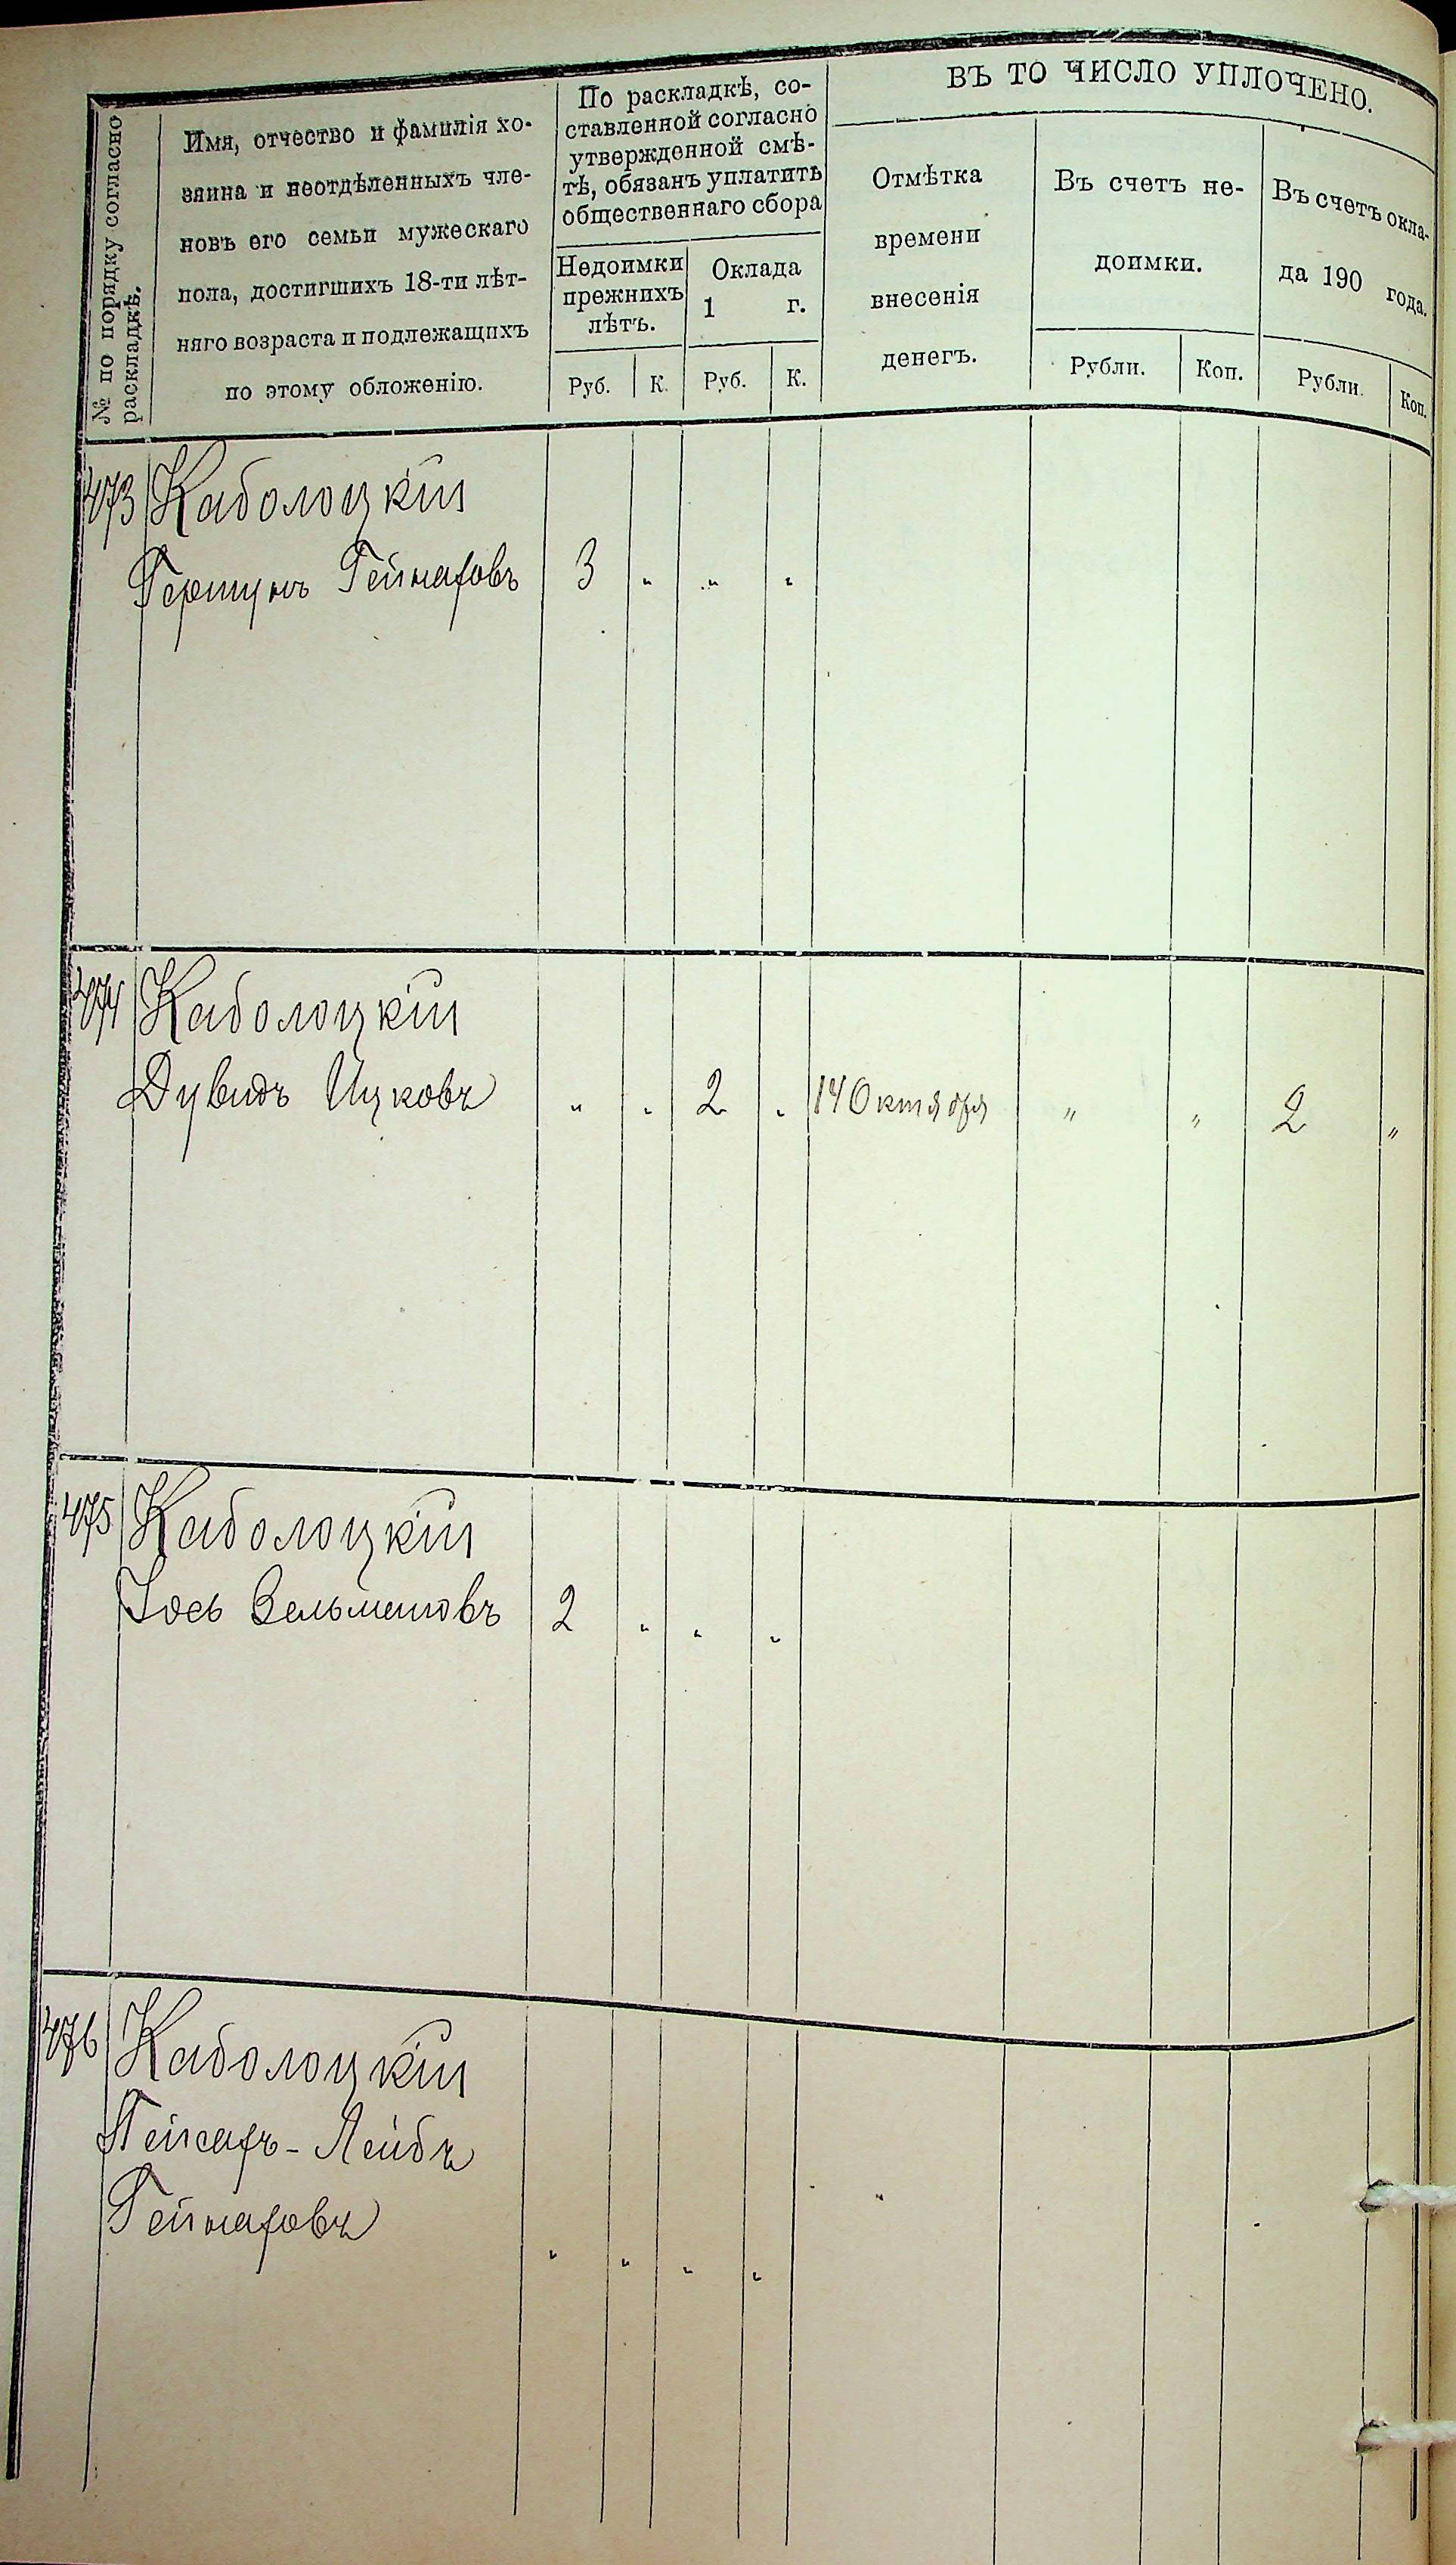 № по порядку согласно
раскладкѣ.
Имя, отчество и фамилія хо-
зяина и неотдѣленныхъ чле-
новъ его семьи мужескаго
пола, достигшихъ 18-ти лѣт-
няго возраста и подлежащихъ
по этому обложенію.
По раскладкѣ, со-
ставленной согласно
утвержденной смѣ-
тѣ, обязанъ уплатить
общественнаго сбора
Недоимки
прежнихъ
лѣтъ.
Оклада
1 г.
Руб. К. Руб. К.
ВЪ ТО ЧИСЛО УПЛОЧЕНО.
Отмѣтка
времени
внесенія
денегъ.
Въ счетъ не-
доимки.
Рубли. Коп.
Въ счетъ окла-
да 190 года.
Рубли. Коп.
473 Каболоцкій
Гершунъ 3 " " "
474 Каболоцкій
Дувидъ Ицковъ " " 2 " 14 Октября " " 2 "
475 Каболоцкій
Іось Зельмановъ 2 " " "
476 Каболоцкій
Лейбъ
" " " "